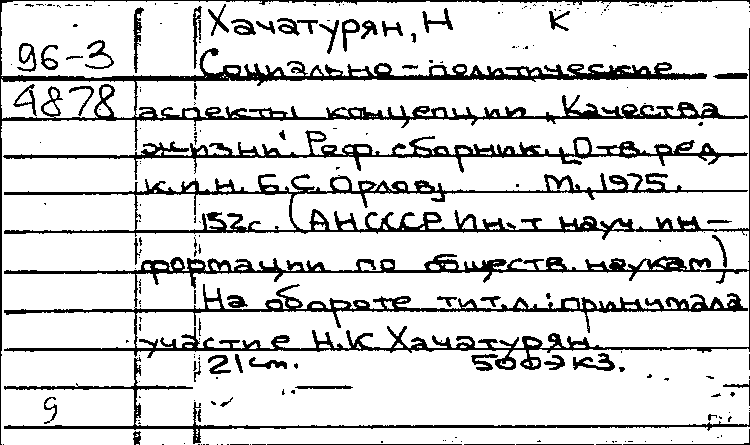 Хачатурян, Н К
96-3 Социально-политические
4878 аспекты концепции „Качества
жизни". Реф. сборник. [Отв. ред
к.и.н. Б.С. Орлов] М., 1975.
152с. (АНСССР. Ин-т науч. ин-
формации по обществ. наукам)
На обороте тит.л.: принимала
участие Н.К Хачатурян.
21 см. 500экз.
9